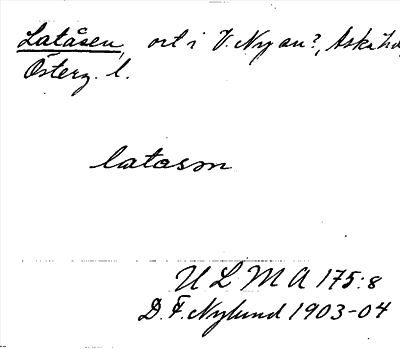 Latåsen, ort i V. Ny an?, Aska hd
Österg. l.
latåsn
U L M A 175:8
D. F. Nylund 1903-04